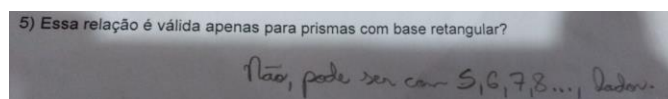 5) Essa relação é válida apenas para prismas com base retangular?
Não, pode ser com 5,6,7,8..., lados.